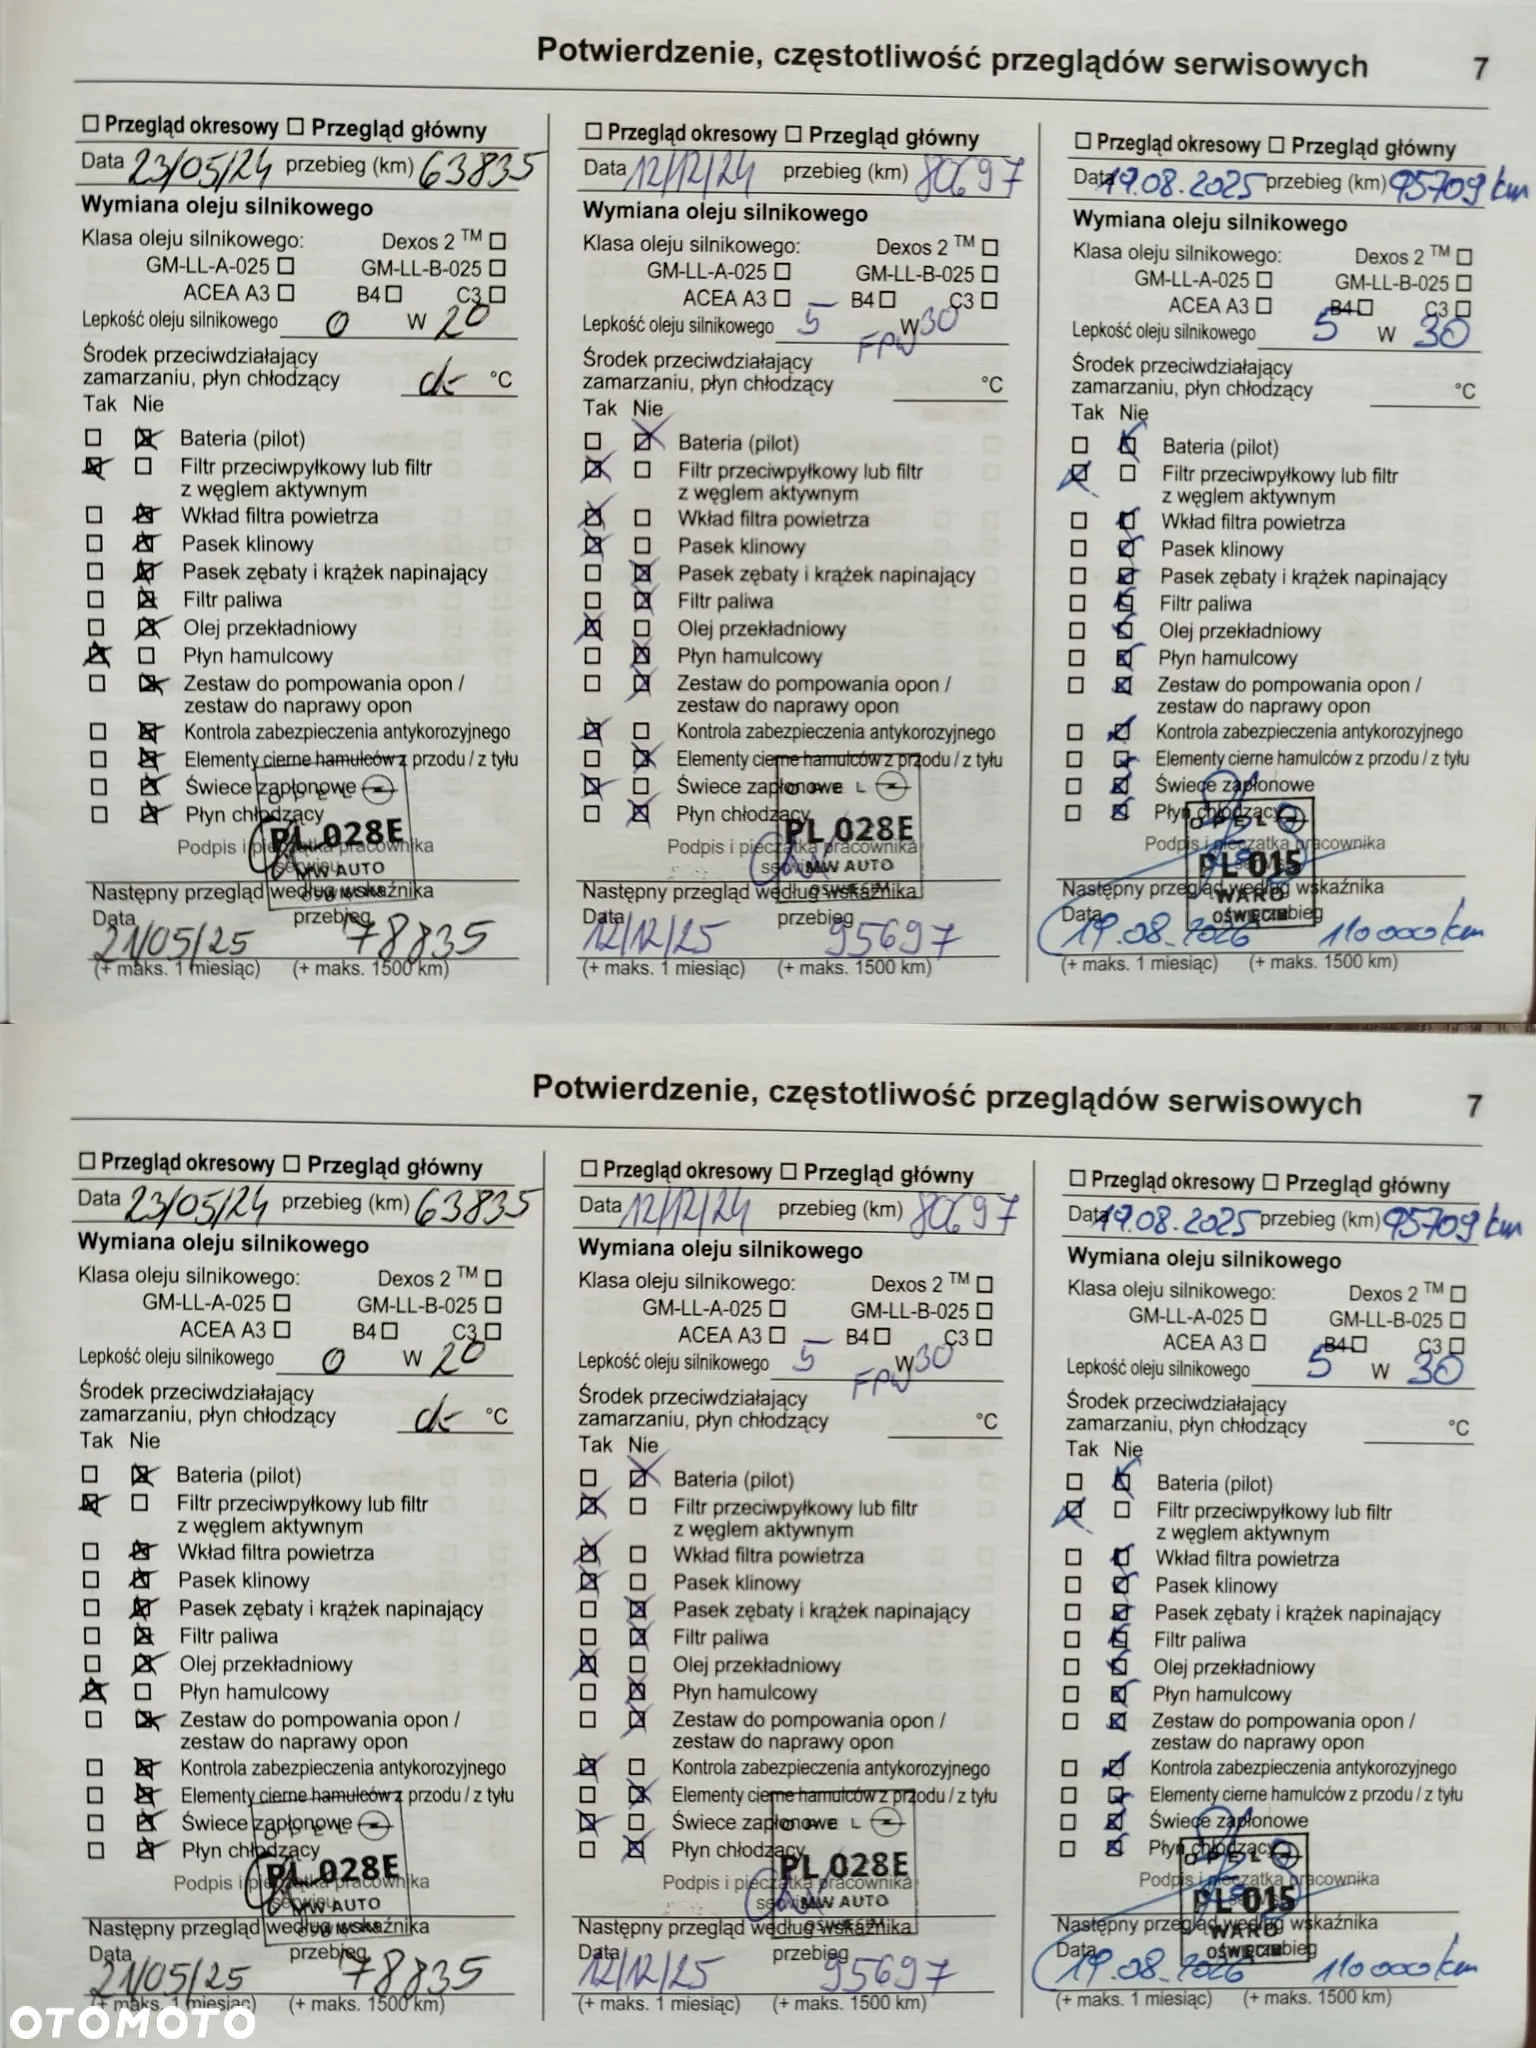 Potwierdzenie, częstotliwość przeglądów serwisowych 7
☐ Przegląd okresowy ☐ Przegląd główny
Data 23/05/24 przebieg (km) 63835
Wymiana oleju silnikowego
Klasa oleju silnikowego: Dexos 2 TM ☐
GM-LL-A-025 ☐ GM-LL-B-025 ☐
ACEA A3 ☐ B4 ☐ C3 ☐
Lepkość oleju silnikowego 0 W 20
Środek przeciwdziałający
zamarzaniu, płyn chłodzący °C
Tak Nie
☐ ☒ Bateria (pilot)
☒ ☐ Filtr przeciwpyłkowy lub filtr
z węglem aktywnym
☐ ☒ Wkład filtra powietrza
☐ ☒ Pasek klinowy
☐ ☒ Pasek zębaty i krążek napinający
☐ ☒ Filtr paliwa
☐ ☒ Olej przekładniowy
☒ ☐ Płyn hamulcowy
☐ ☒ Zestaw do pompowania opon /
zestaw do naprawy opon
☐ ☒ Kontrola zabezpieczenia antykorozyjnego
☐ ☒ Elementy cierne hamulców z przodu / z tyłu
☐ ☒ Świece zapłonowe
☐ ☒ Płyn chłodzący
OPEL
PL 028E
MW AUTO
Podpis i pieczątka pracownika
serwisu
Następny przegląd według wskaźnika
Data 21/05/25 przebieg 78835
(+ maks. 1 miesiąc) (+ maks. 1500 km)
☐ Przegląd okresowy ☐ Przegląd główny
Data 12/12/24 przebieg (km) 80697
Wymiana oleju silnikowego
Klasa oleju silnikowego: Dexos 2 TM ☐
GM-LL-A-025 ☐ GM-LL-B-025 ☐
ACEA A3 ☐ B4 ☐ C3 ☐
Lepkość oleju silnikowego 5 W 30
FPW
Środek przeciwdziałający
zamarzaniu, płyn chłodzący °C
Tak Nie
☐ ☒ Bateria (pilot)
☒ ☐ Filtr przeciwpyłkowy lub filtr
z węglem aktywnym
☒ ☐ Wkład filtra powietrza
☒ ☐ Pasek klinowy
☐ ☒ Pasek zębaty i krążek napinający
☐ ☒ Filtr paliwa
☒ ☐ Olej przekładniowy
☐ ☒ Płyn hamulcowy
☐ ☒ Zestaw do pompowania opon /
zestaw do naprawy opon
☒ ☐ Kontrola zabezpieczenia antykorozyjnego
☐ ☒ Elementy cierne hamulców z przodu / z tyłu
☒ ☐ Świece zapłonowe
☐ ☒ Płyn chłodzący
OPEL
PL 028E
MW AUTO
OŚWIĘCIM
Podpis i pieczątka pracownika
serwisu
Następny przegląd według wskaźnika
Data 12/12/25 przebieg 95697
(+ maks. 1 miesiąc) (+ maks. 1500 km)
☐ Przegląd okresowy ☐ Przegląd główny
Data 19.08.2025 przebieg (km) 95709 km
Wymiana oleju silnikowego
Klasa oleju silnikowego: Dexos 2 TM ☐
GM-LL-A-025 ☐ GM-LL-B-025 ☐
ACEA A3 ☐ B4 ☐ C3 ☐
Lepkość oleju silnikowego 5 W 30
Środek przeciwdziałający
zamarzaniu, płyn chłodzący °C
Tak Nie
☐ ☒ Bateria (pilot)
☒ ☐ Filtr przeciwpyłkowy lub filtr
z węglem aktywnym
☐ ☒ Wkład filtra powietrza
☐ ☒ Pasek klinowy
☐ ☒ Pasek zębaty i krążek napinający
☐ ☒ Filtr paliwa
☐ ☒ Olej przekładniowy
☐ ☒ Płyn hamulcowy
☐ ☒ Zestaw do pompowania opon /
zestaw do naprawy opon
☐ ☒ Kontrola zabezpieczenia antykorozyjnego
☐ ☒ Elementy cierne hamulców z przodu / z tyłu
☐ ☒ Świece zapłonowe
☐ ☒ Płyn chłodzący
OPEL
PL 015
WARO
OŚWIĘCIM
Podpis i pieczątka pracownika
serwisu
Następny przegląd według wskaźnika
Data 19.08.2026 przebieg 110000 km
(+ maks. 1 miesiąc) (+ maks. 1500 km)
Potwierdzenie, częstotliwość przeglądów serwisowych 7
☐ Przegląd okresowy ☐ Przegląd główny
Data 23/05/24 przebieg (km) 63835
Wymiana oleju silnikowego
Klasa oleju silnikowego: Dexos 2 TM ☐
GM-LL-A-025 ☐ GM-LL-B-025 ☐
ACEA A3 ☐ B4 ☐ C3 ☐
Lepkość oleju silnikowego 0 W 20
Środek przeciwdziałający
zamarzaniu, płyn chłodzący °C
Tak Nie
☐ ☒ Bateria (pilot)
☒ ☐ Filtr przeciwpyłkowy lub filtr
z węglem aktywnym
☐ ☒ Wkład filtra powietrza
☐ ☒ Pasek klinowy
☐ ☒ Pasek zębaty i krążek napinający
☐ ☒ Filtr paliwa
☐ ☒ Olej przekładniowy
☒ ☐ Płyn hamulcowy
☐ ☒ Zestaw do pompowania opon /
zestaw do naprawy opon
☐ ☒ Kontrola zabezpieczenia antykorozyjnego
☐ ☒ Elementy cierne hamulców z przodu / z tyłu
☐ ☒ Świece zapłonowe
☐ ☒ Płyn chłodzący
OPEL
PL 028E
MW AUTO
Podpis i pieczątka pracownika
serwisu
Następny przegląd według wskaźnika
Data 21/05/25 przebieg 78835
(+ maks. 1 miesiąc) (+ maks. 1500 km)
☐ Przegląd okresowy ☐ Przegląd główny
Data 12/12/24 przebieg (km) 80697
Wymiana oleju silnikowego
Klasa oleju silnikowego: Dexos 2 TM ☐
GM-LL-A-025 ☐ GM-LL-B-025 ☐
ACEA A3 ☐ B4 ☐ C3 ☐
Lepkość oleju silnikowego 5 W 30
FPW
Środek przeciwdziałający
zamarzaniu, płyn chłodzący °C
Tak Nie
☐ ☒ Bateria (pilot)
☒ ☐ Filtr przeciwpyłkowy lub filtr
z węglem aktywnym
☒ ☐ Wkład filtra powietrza
☒ ☐ Pasek klinowy
☐ ☒ Pasek zębaty i krążek napinający
☐ ☒ Filtr paliwa
☒ ☐ Olej przekładniowy
☐ ☒ Płyn hamulcowy
☐ ☒ Zestaw do pompowania opon /
zestaw do naprawy opon
☒ ☐ Kontrola zabezpieczenia antykorozyjnego
☐ ☒ Elementy cierne hamulców z przodu / z tyłu
☒ ☐ Świece zapłonowe
☐ ☒ Płyn chłodzący
OPEL
PL 028E
MW AUTO
OŚWIĘCIM
Podpis i pieczątka pracownika
serwisu
Następny przegląd według wskaźnika
Data 12/12/25 przebieg 95697
(+ maks. 1 miesiąc) (+ maks. 1500 km)
☐ Przegląd okresowy ☐ Przegląd główny
Data 19.08.2025 przebieg (km) 95709 km
Wymiana oleju silnikowego
Klasa oleju silnikowego: Dexos 2 TM ☐
GM-LL-A-025 ☐ GM-LL-B-025 ☐
ACEA A3 ☐ B4 ☐ C3 ☐
Lepkość oleju silnikowego 5 W 30
Środek przeciwdziałający
zamarzaniu, płyn chłodzący °C
Tak Nie
☐ ☒ Bateria (pilot)
☒ ☐ Filtr przeciwpyłkowy lub filtr
z węglem aktywnym
☐ ☒ Wkład filtra powietrza
☐ ☒ Pasek klinowy
☐ ☒ Pasek zębaty i krążek napinający
☐ ☒ Filtr paliwa
☐ ☒ Olej przekładniowy
☐ ☒ Płyn hamulcowy
☐ ☒ Zestaw do pompowania opon /
zestaw do naprawy opon
☐ ☒ Kontrola zabezpieczenia antykorozyjnego
☐ ☒ Elementy cierne hamulców z przodu / z tyłu
☐ ☒ Świece zapłonowe
☐ ☒ Płyn chłodzący
OPEL
PL 015
WARO
OŚWIĘCIM
Podpis i pieczątka pracownika
serwisu
Następny przegląd według wskaźnika
Data 19.08.2026 przebieg 110000 km
(+ maks. 1 miesiąc) (+ maks. 1500 km)
OTOMOTO